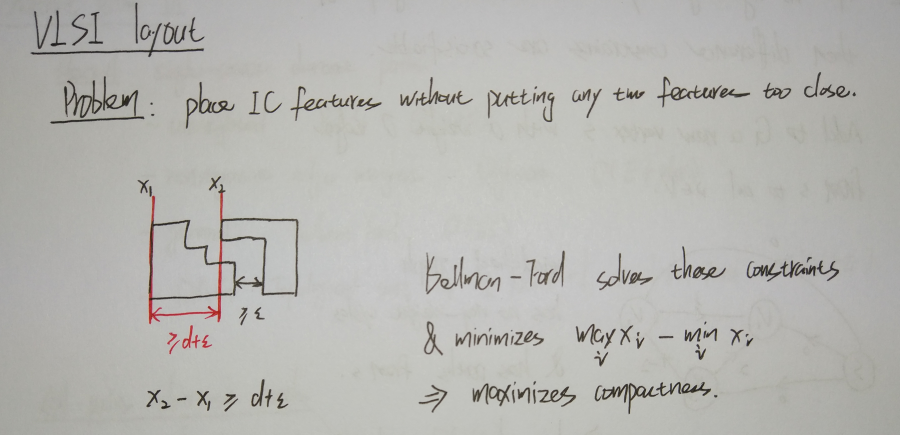 VLSI layout
Problem: place IC features without putting any two features too close.
x₁ x₂
≥ε
≥d+ε
x₂ - x₁ ≥ d+ε
Bellman-Ford solves these constraints
& minimizes max xᵢ - min xᵢ
i i
⇒ maximizes compactness.